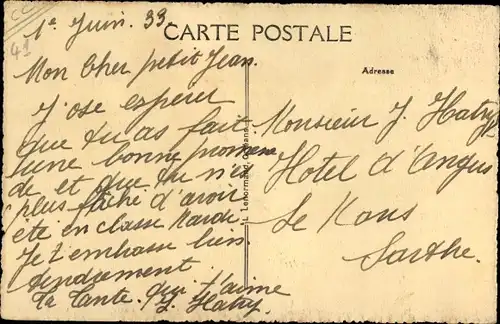 1e Juin. 33.
CARTE POSTALE
41
Mon Cher petit Jean.
J'ose esperer
que tu as fait
une bonne promena
de et que tu n'es
plus faché d'avoir
été en classe Mardi.
Je t'embrasse bien
tendrement
ta tante. qui t'aime
J. Hatry
L. Lenormand, Orléans
Adresse
Monsieur J. Hatry
Hotel d'Angers
Le Mans
Sarthe.